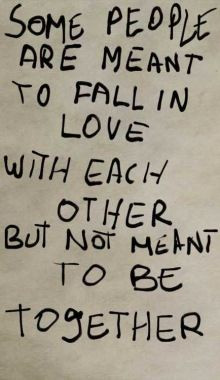 SOME PEOPLE
ARE MEANT
TO FALL IN
LOVE
WITH EACH
OTHER
BUT NOT MEANT
TO BE
TOgETHER